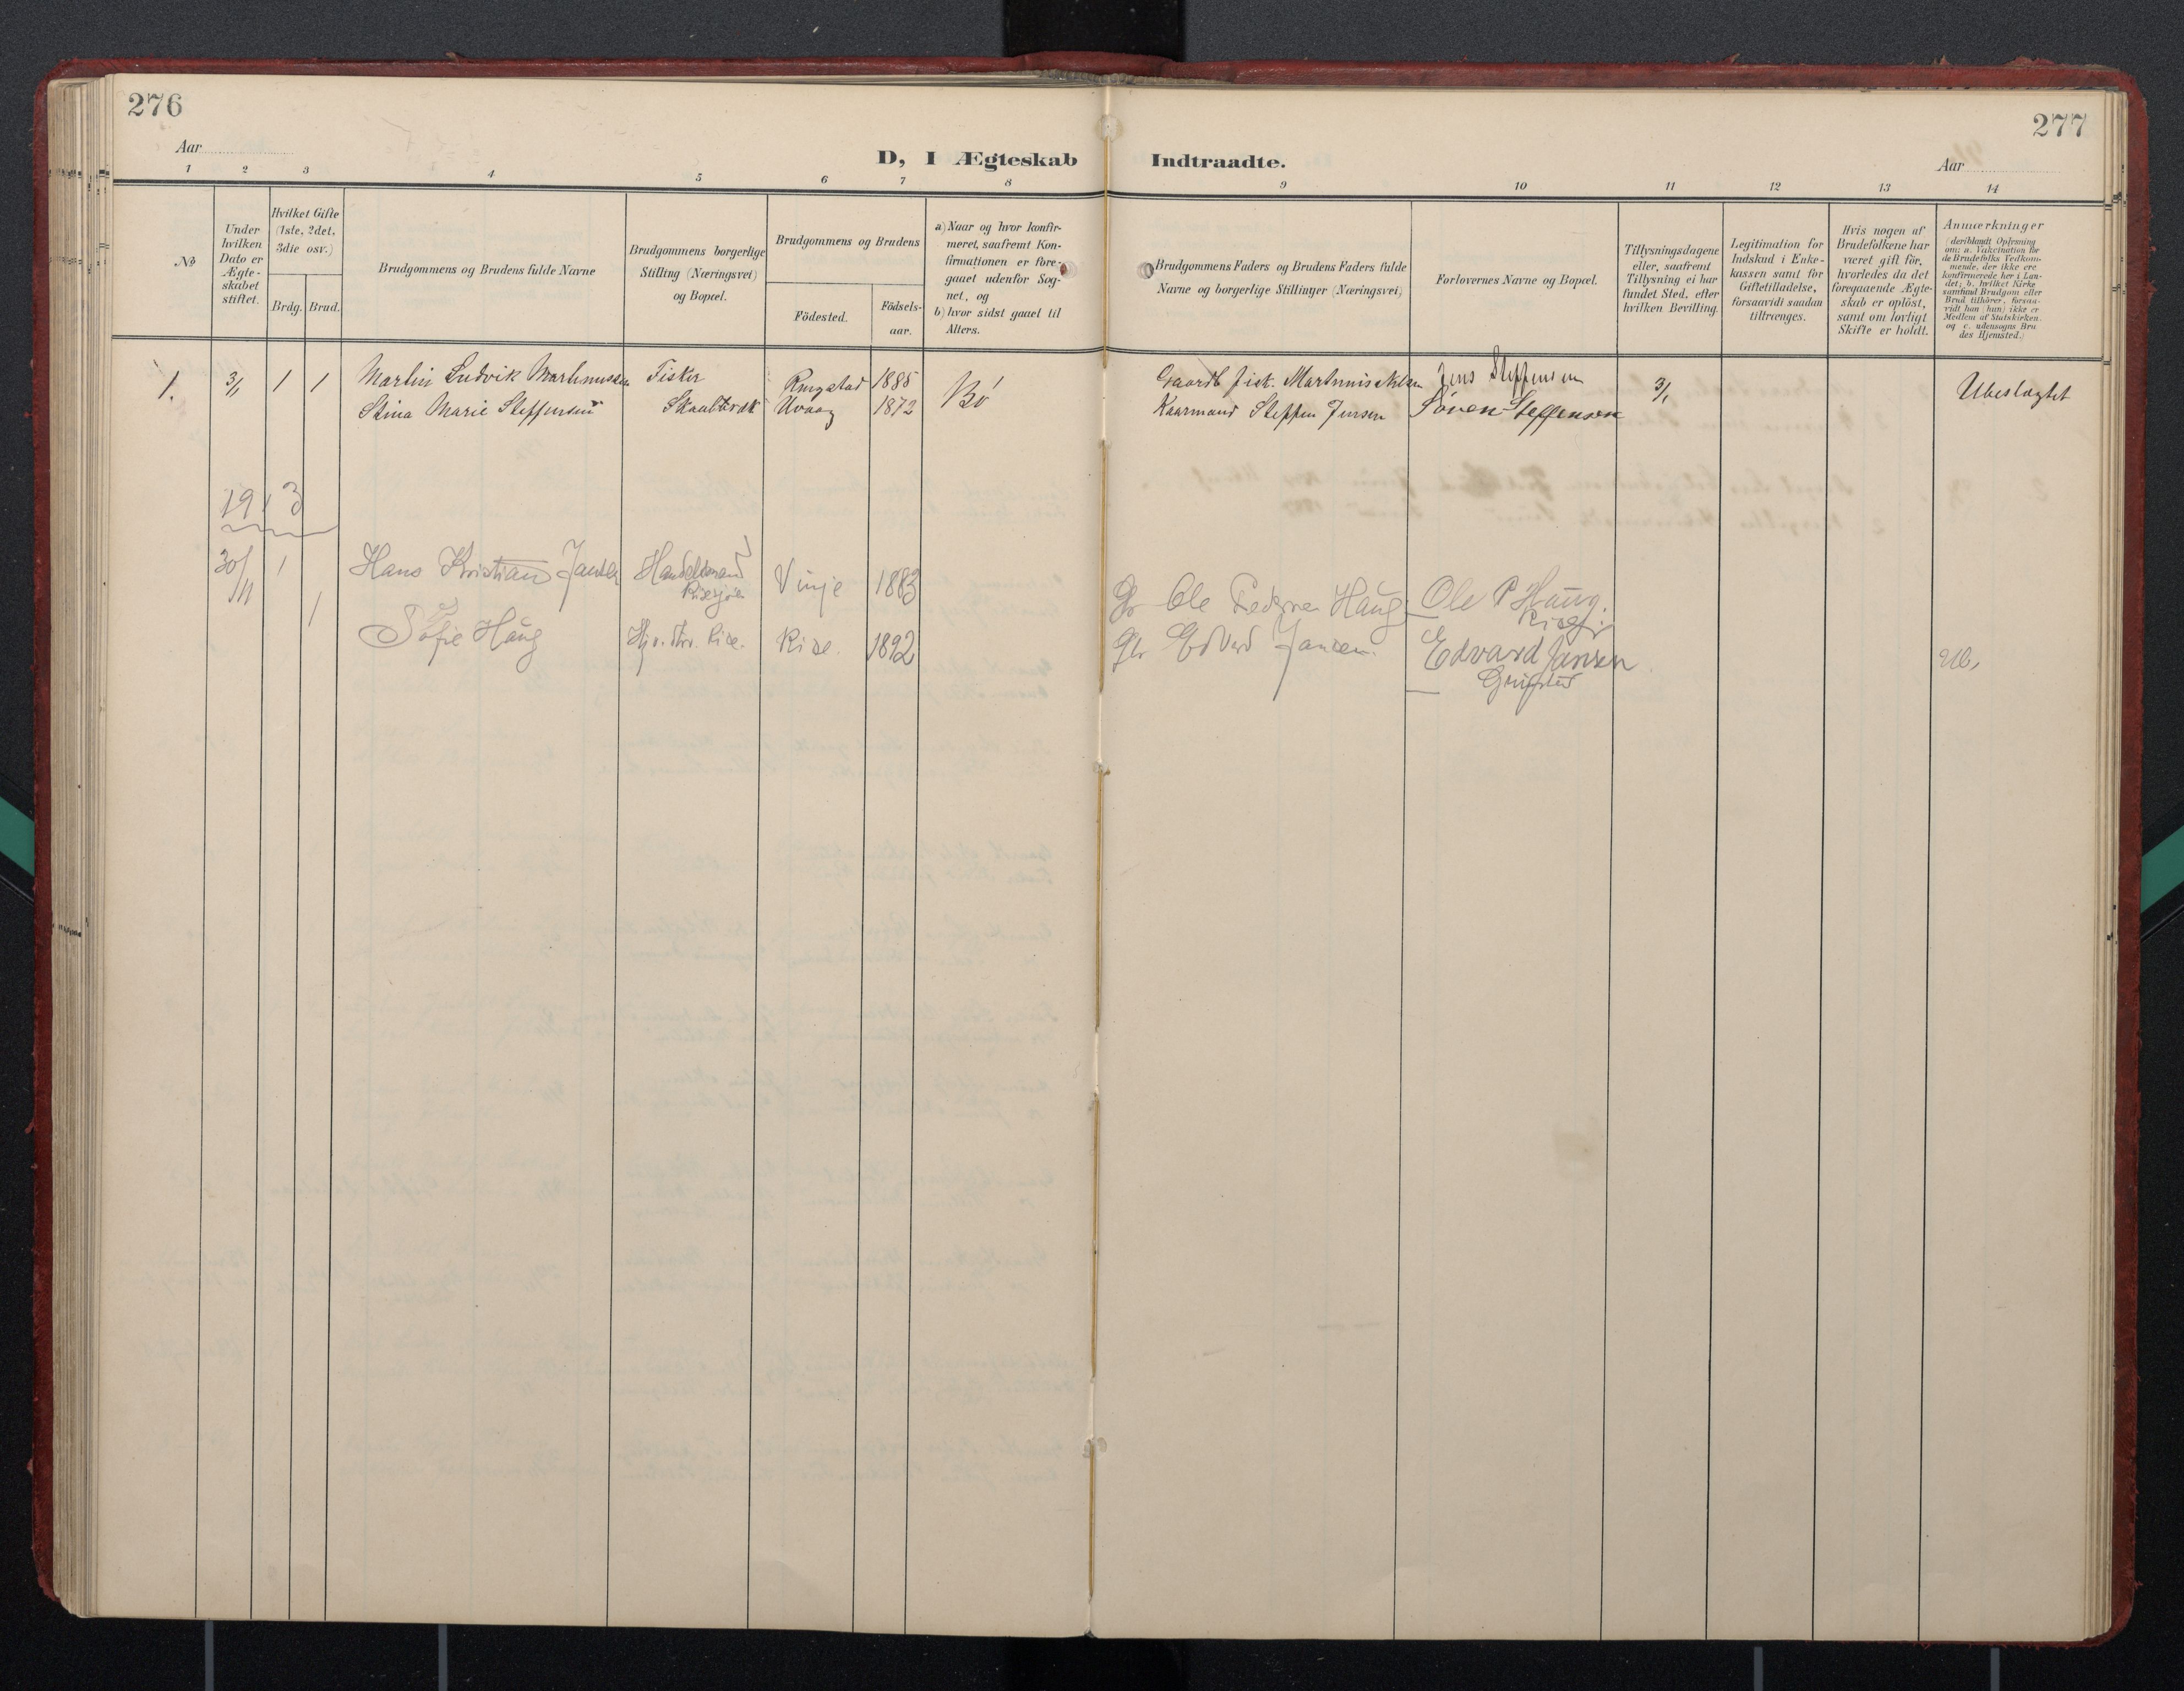 276
Aar
D, I Ægteskab
1 2 3 4 5 6 7 8
No
Under hvilken Dato er Ægte-skabet stiftet.
Hvilket Gifte (1ste, 2det, 3die osv.)
Brdg. Brud.
Brudgommens og Brudens fulde Navne
Brudgommens borgerlige Stilling (Næringsvei) og Bopæl.
Brudgommens og Brudens
Födested.
Födsels-aar.
a) Naar og hvor konfir-meret, saafremt Kon-firmationen er fore-gaaet udenfor Sog-net, og
b) hvor sidst gaaet til Alters.
1. 3/1 1 1 Martin Ludvik Martinussen Fisker Ringstad 1885 Bö
Stina Marie Steffensen Skaaltvik Uvaag 1872
1913
30/11 1 Hans Kristian Jansen Handelsmand Vinje 1883
Risesjöen
1 Sofie Haug Rise. Rise. 1892
277
Indtraadte.
Aar
9 10 11 12 13 14
Brudgommens Faders og Brudens Faders fulde Navne og borgerlige Stillinger (Næringsvei)
Forlovernes Navne og Bopæl.
Tillysningsdagene eller, saafremt Tillysning ei har fundet Sted, efter hvilken Bevilling.
Legitimation for Indskud i Enke-kassen samt for Giftetilladelse, forsaavidt saadan tiltrænges.
Hvis nogen af Brudefolkene har været gift för, hvorledes da det foregaaende Ægte-skab er oplöst, samt om lovligt Skifte er holdt.
Anmærkninger
(deriblandt Oplysning om: a. Vakcination for de Brudefolks Vedkom-mende, der ikke ere konfirmerede her i Lan-det; b. hvilket Kirke-samfund Brudgom eller Brud tilhörer, forsaa-vidt han (hun) ikke er Medlem af Statskirken, og c. udensogns Bru-des Hjemsted.)
Gaardb fisk. Martinus Jens Steffensen 3/1 Ubeslægtet
Kaarmand Steffen Jensen Sören Steffensen
Ole Pedersen Haug Ole P Haug.
Edvard Jansen Edvard Jansen Ub.